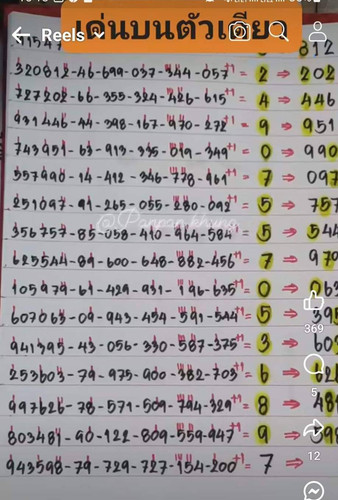 เด่นบนตัวเดียว
Reels
812
320812-46-699-037-344-057+1 = 2 ⇒ 202
727202-66-355-324-426-615+1 = 4 ⇒ 446
931446-44-398-167-970-272+1 = 9 ⇒ 951
743951-63-913-335-019-349+1 = 0 ⇒ 990
357990-14-412-346-778-961+1 = 7 ⇒ 097
251097-91-265-055-280-092+1 = 5 ⇒ 757
@Panpan khung
356757-85-058-410-964-584+1 = 5 ⇒ 544
625544-89-600-648-882-456+1 = 7 ⇒ 979
105979-61-429-931-196-635+1 = 0 ⇒ 063
607063-09-943-454-591-544+1 = 5 ⇒ 395
369
941395-43-056-330-587-375+1 = 3 ⇒ 603
253603-79-975-900-382-703+1 = 6 ⇒ 626
5
997626-78-571-509-794-329+1 = 8 ⇒ 481
803481-90-122-809-559-947+1 = 9 ⇒ 598
943598-79-729-727-154-200+1 = 7 ⇒
12